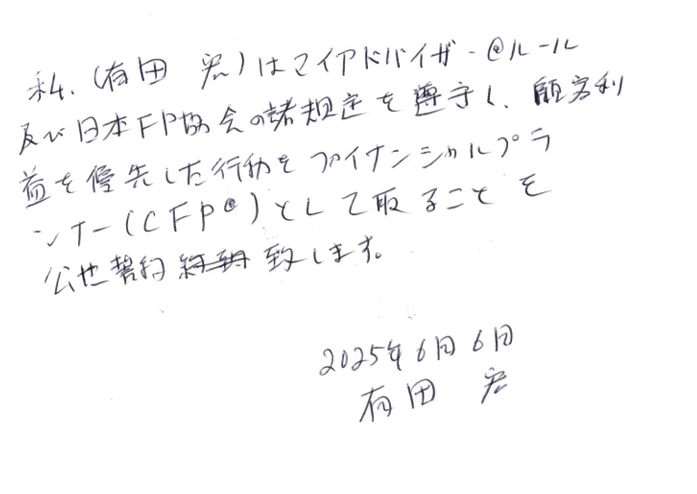 私、(有田 宏)はマイアドバイザー@ルール
及び日本FP協会の諸規定を遵守し、顧客利
益を優先した行動をファイナンシャルプラ
ンナー(CFP®)として取ることを
公也契約 致します。
2025年6月6日
有田 宏